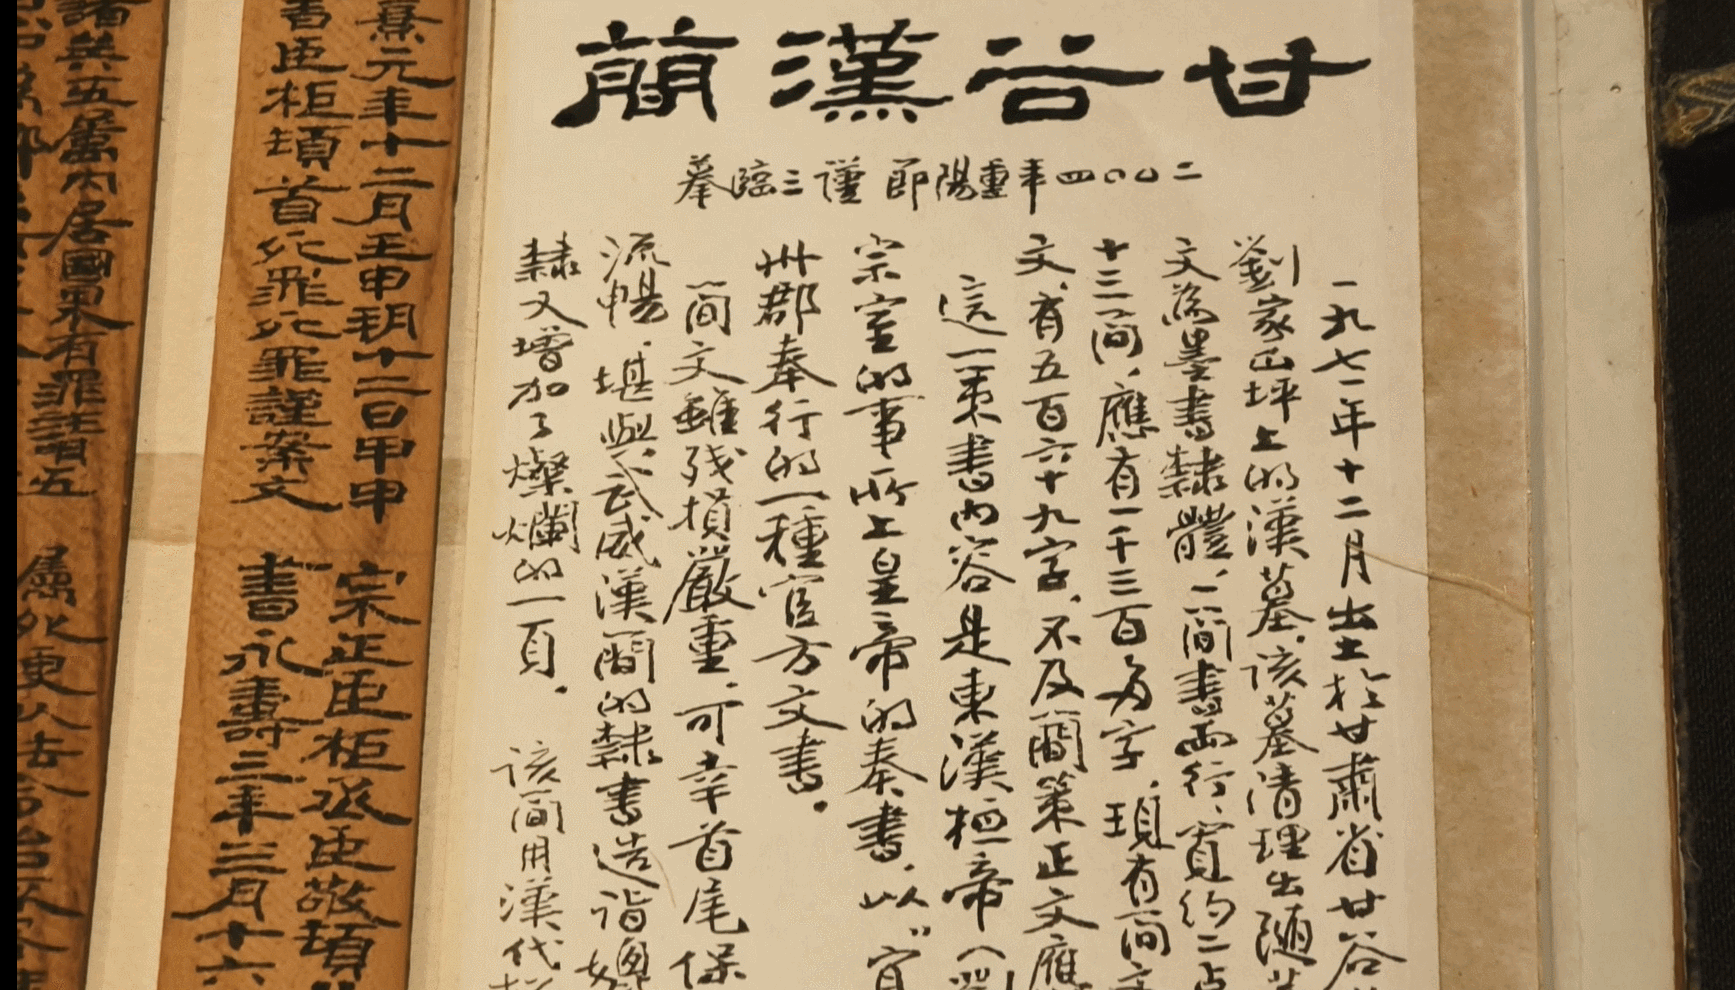 甘谷漢簡
二〇〇四年重陽節 謹三臨摹
一九七一年十二月出土於甘肅省甘谷
劉家山坪上的漢墓，該墓清理出隨
文為墨書隸體，一簡書兩行，寬約二点
十三簡，應有一千三百多字，現有簡
文，有五百六十九字，不及簡策正文應
這一策書內容是東漢桓帝（劉
宗室的事所上皇帝的奏書，以“官
州郡奉行的一種官方文書。
簡文雖殘損嚴重，可幸首尾保
流暢，堪與武威漢簡的隸書造詣媲
隸又增加了燦爛的一頁。 該簡用漢代
熹元年十二月壬申朔十二日甲申 宗正臣柜丞臣敬頓
書臣柜頓首死罪死罪謹案文 書永壽三年三月十六
諸兵五屬內居國界有罪請五
屬死更人去